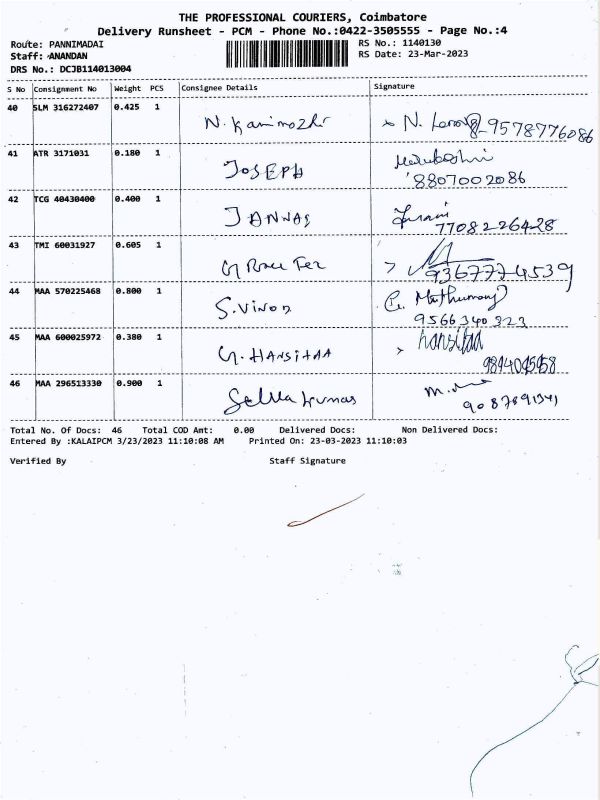 THE PROFESSIONAL COURIERS, Coimbatore
Delivery Runsheet - PCM - Phone No.:0422-3505555 - Page No.:4
Route: PANNIMADAI RS No.: 1140130
Staff: ANANDAN RS Date: 23-Mar-2023
DRS No.: DCJB114013004
S No Consignment No Weight PCS Consignee Details Signature
40 SLM 316272407 0.425 1 N. Kanimozhi N. 9578776086
41 ATR 3171031 0.180 1 JOSEPH
8807002086
42 TCG 40430400 0.400 1 JANNAS
7708226428
43 TMI 60031927 0.605 1
9367774539
44 MAA 570225468 0.800 1 S.VINOD
9566340323
45 MAA 600025972 0.380 1 G. HANSIHAA hansitaa
46 MAA 296513330 0.900 1 Selva kumar
Total No. Of Docs: 46 Total COD Amt: 0.00 Delivered Docs: Non Delivered Docs:
Entered By :KALAIPCM 3/23/2023 11:10:08 AM Printed On: 23-03-2023 11:10:03
Verified By Staff Signature